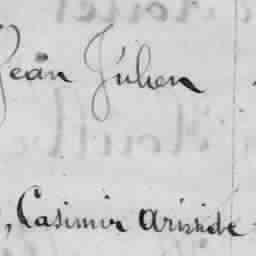 Jean Julien
, Casimir Aristide